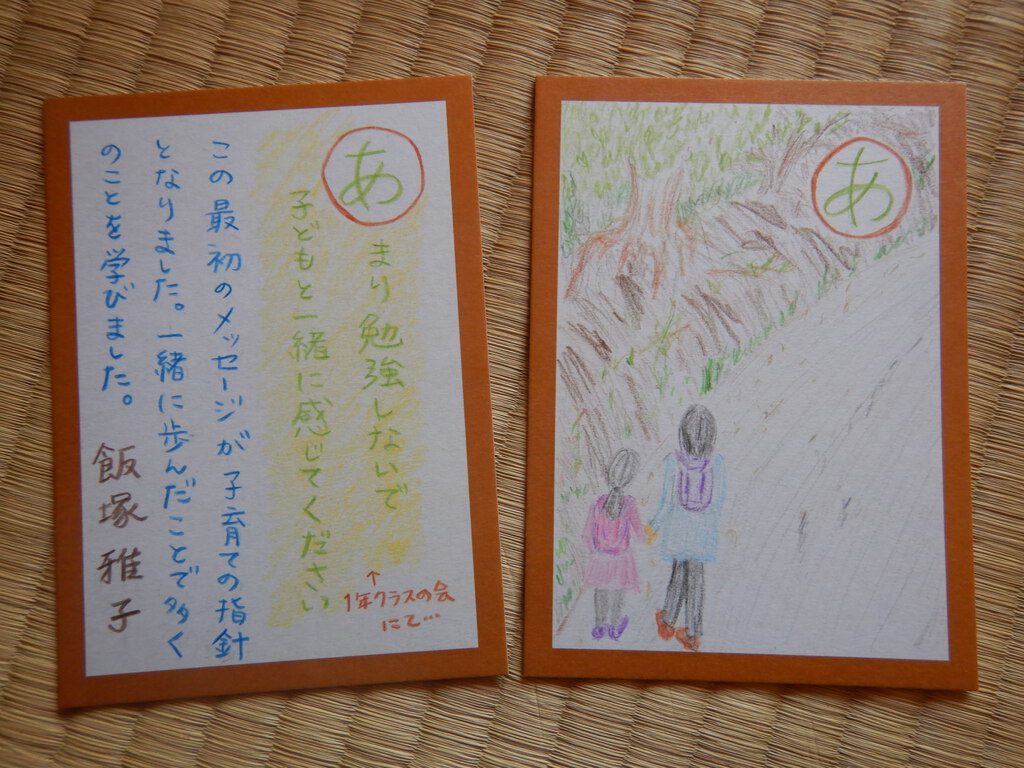 あ
まり勉強しないで
子どもと一緒に感じてください
↑
1年クラスの会
にて…
この最初のメッセージが子育ての指針
となりました。一緒に歩んだことで多く
のことを学びました。
飯塚雅子
あ